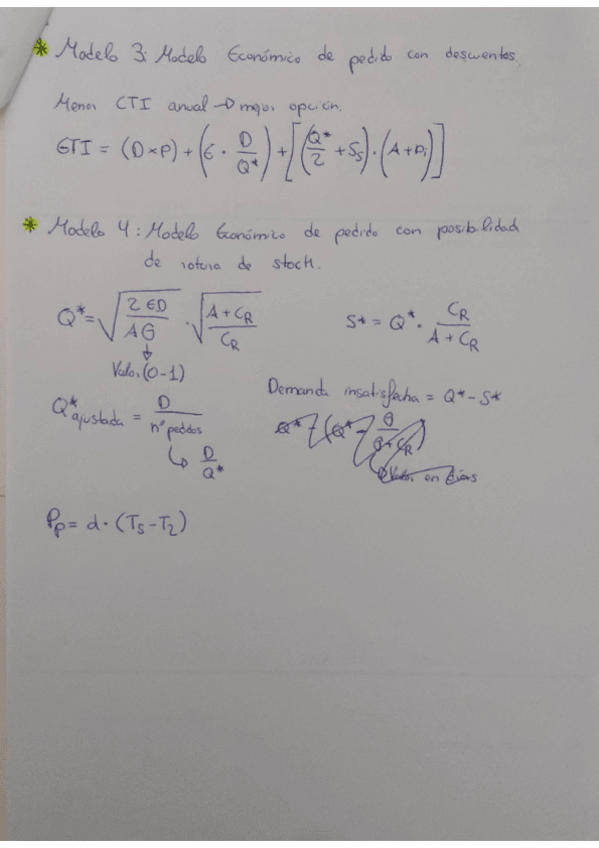 * Modelo 3: Modelo Económico de pedido con descuentos.
Menor CTI anual → mejor opción.
CTI = (D×P) + (E · D/Q*) + [(Q*/2 + Ss) · (A + Pi)]
* Modelo 4: Modelo Económico de pedido con posibilidad
de rotura de stock.
Q* = √(2ED/Aθ) · √((A + CR)/CR)
S* = Q* · CR/(A + CR)
↓
Valor (0-1)
Demanda insatisfecha = Q* - S*
Q* ajustada = D/nº pedidos
↳ D/Q*
Pp = d · (Ts - T2)